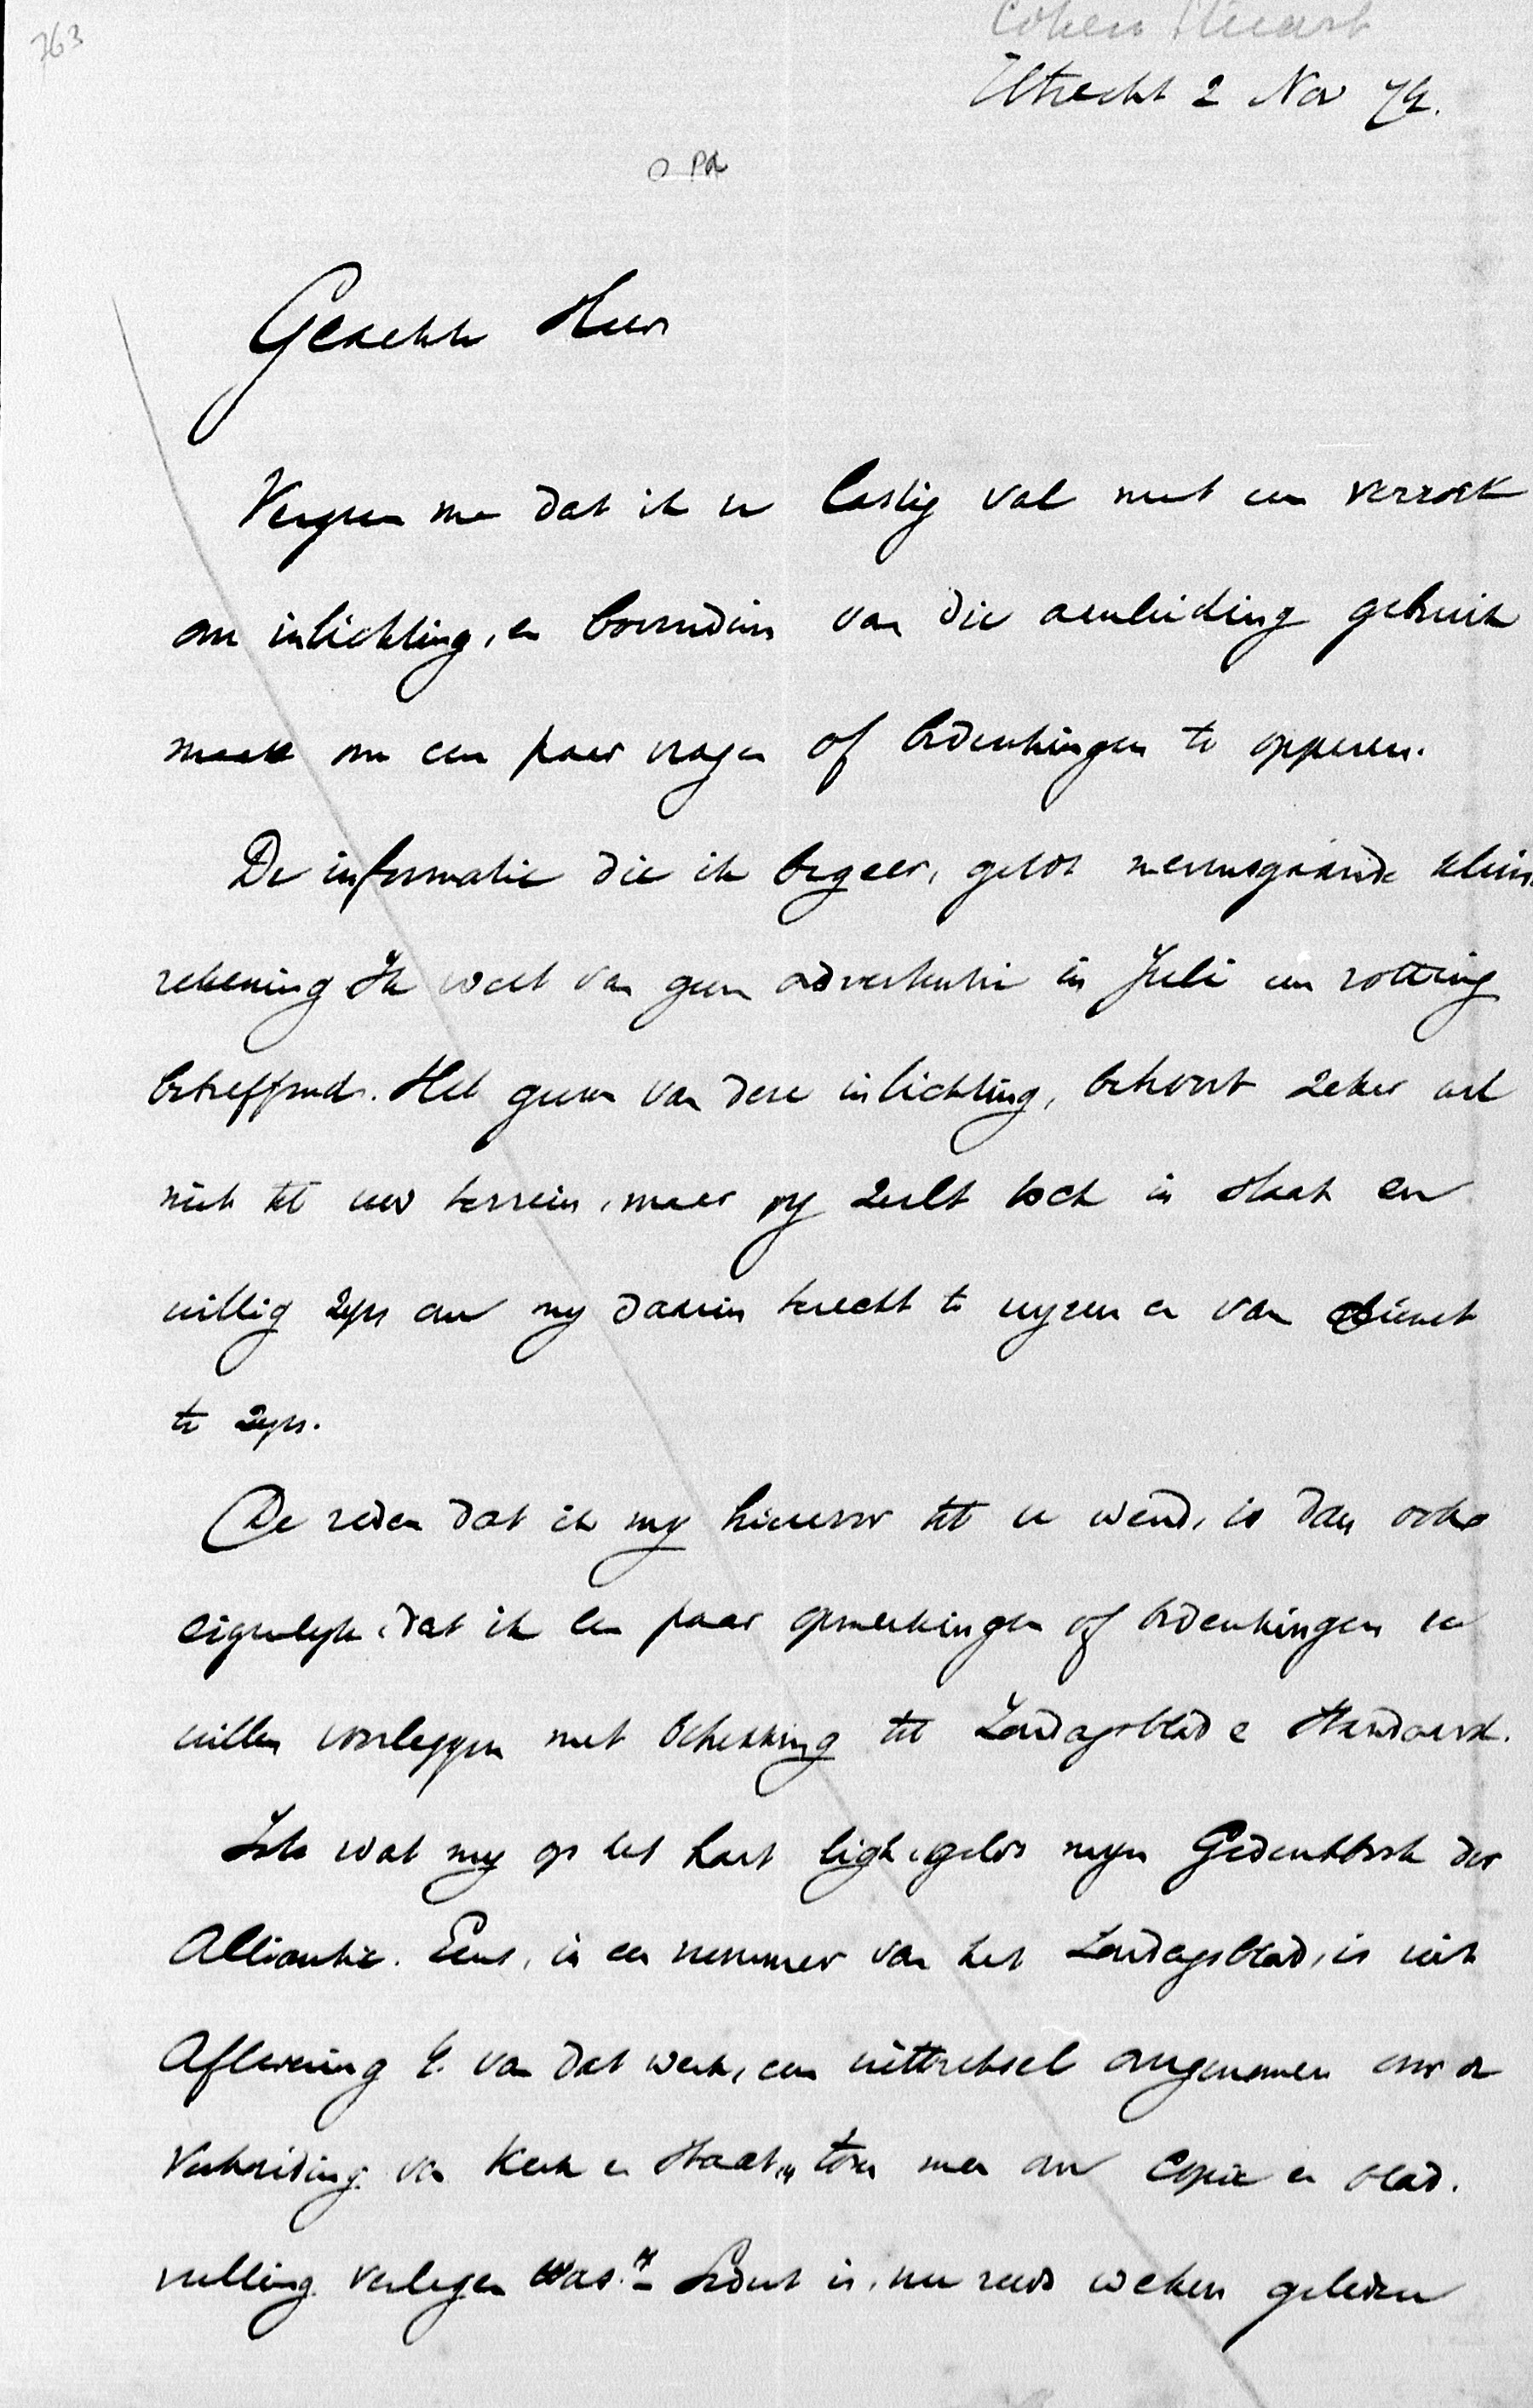 763
Cohen Stuart
Utrecht 2 Nov 74.
Geachte Heer
Vergeef me dat ik u lastig val met een verzoek
om inlichting, en bovendien van die aanleiding gebruik
maak om een paar vragen of bedenkingen te opperen.
De informatie die ik begeer, geldt nevensgaande kleine
rekening Ik weet van geen advertentie in Juli een rotting
betreffend. Het geven van deze inlichting, behoort zeker wel
niet tot uw terrein, maar gy zult toch in staat en
willig zyn om my daarin terecht te wyzen en van dienst
te zyn.
De reden dat ik my hiervoor tot u wend, is dan ook
eigenlyk, dat ik een paar opmerkingen of bedenkingen u
willen voorleggen met betrekking tot Zondagsblad e Standaard.
Iets wat my op het hart ligt, geldt myn Gedenkboek der
Alliantie. Eens, in een nummer van het Zondagsblad, is uit
Aflevering 4 van dat werk, een uittreksel opgenomen over de
Verhouding van Kerk en Staat, "toen men om copie en blad.
vulling verlegen was." Sedert is, nu reeds weken geleden